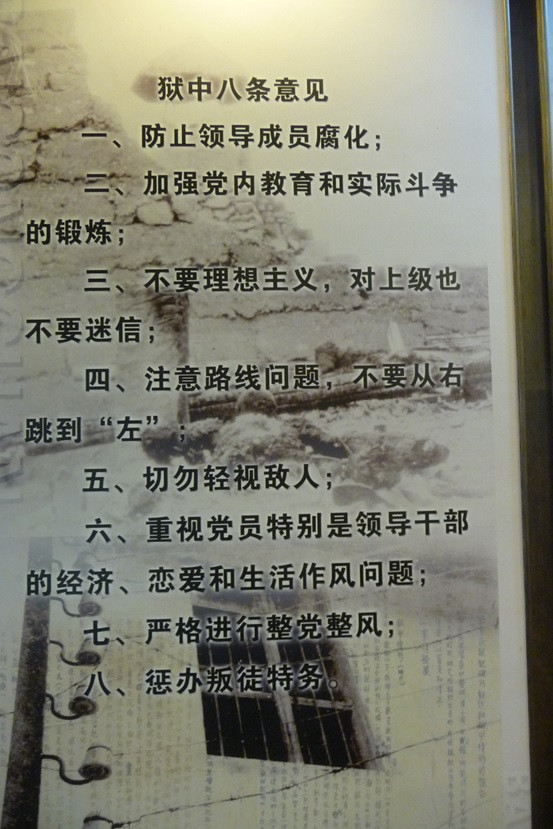 狱中八条意见
一、防止领导成员腐化；
二、加强党内教育和实际斗争
的锻炼；
三、不要理想主义，对上级也
不要迷信；
四、注意路线问题，不要从右
跳到“左”；
五、切勿轻视敌人；
六、重视党员特别是领导干部
的经济、恋爱和生活作风问题；
七、严格进行整党整风；
八、惩办叛徒特务。